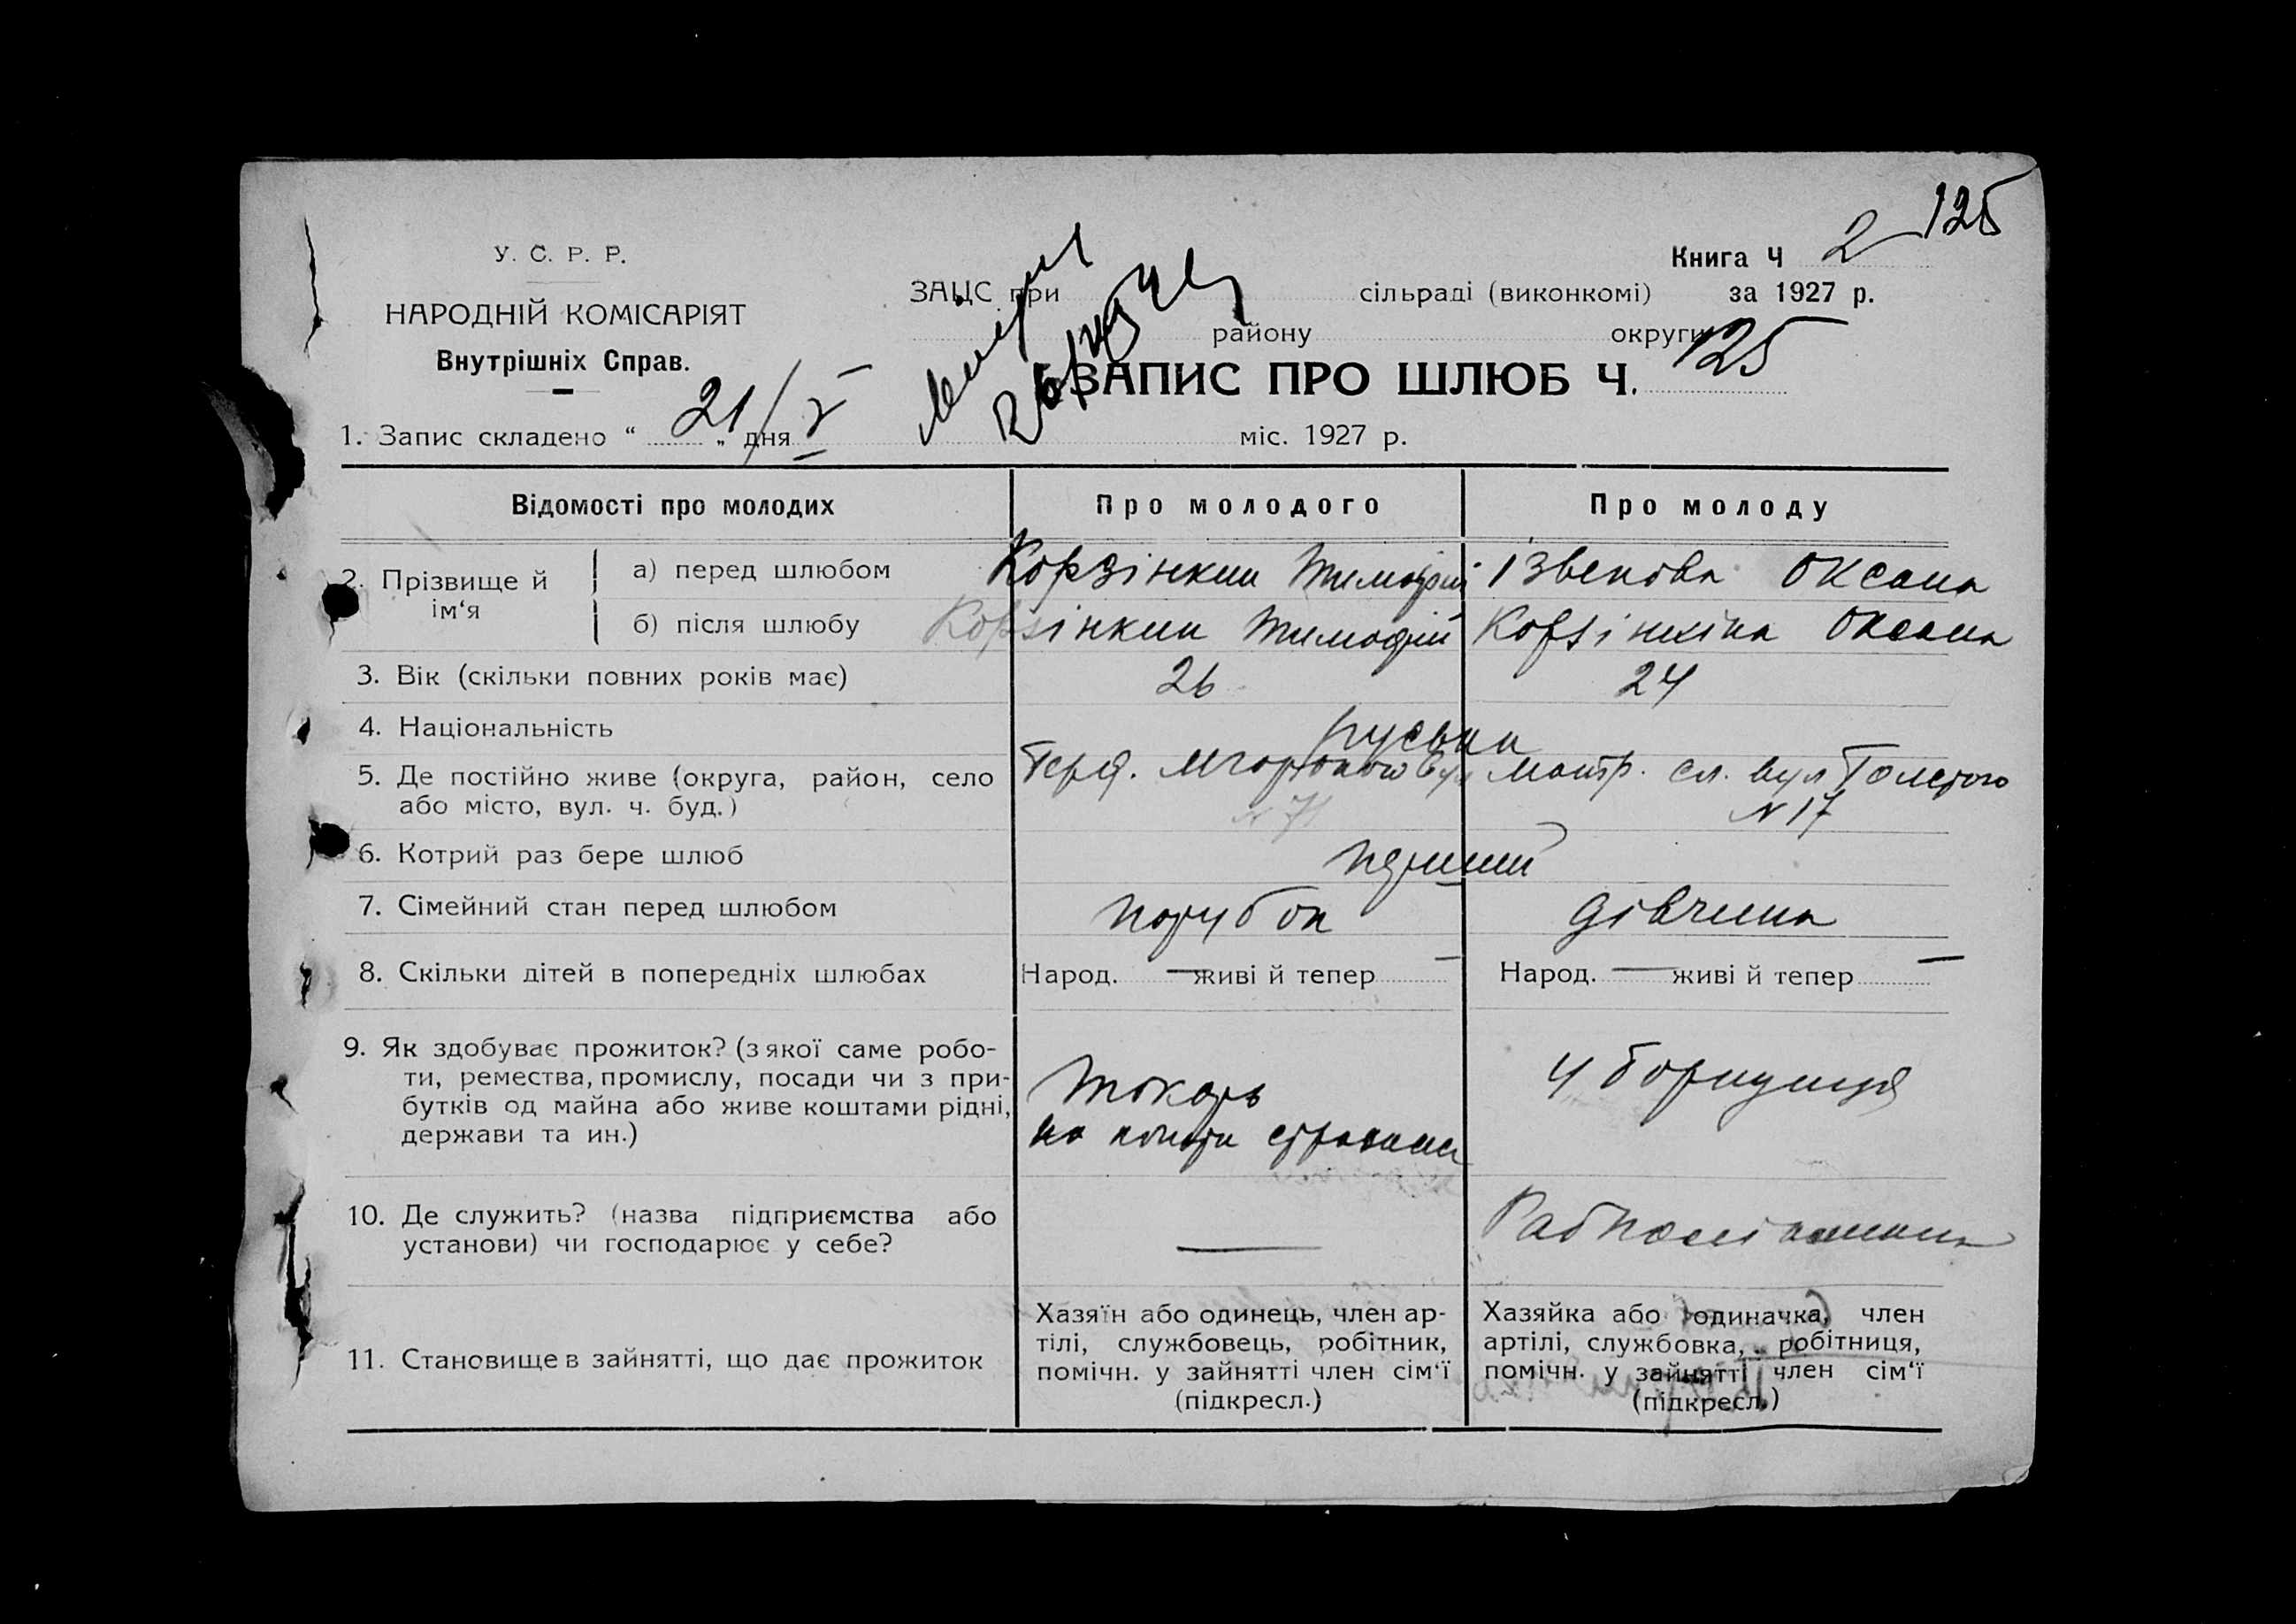 125
У. С. Р. Р.
НАРОДНІЙ КОМІСАРІЯТ
Внутрішніх Справ.
Книга Ч 2
ЗАЦС при сільраді (виконкомі) за 1927 р.
району округи
ЗАПИС ПРО ШЛЮБ Ч. 125
1. Запис складено “ 21 „ дня V міс. 1927 р.
Відомості про молодих Про молодого Про молоду
2. Прізвище й ім‘я
а) перед шлюбом Корзінкин Тимофій Ізвекова Оксана
б) після шлюбу Корзінкин Тимофій Корзінкіна Оксана
3. Вік (скільки повних років має) 26 24
4. Національність руська
5. Де постійно живе (округа, район, село
або місто, вул. ч. буд.)
вул Толстого
N 71 N 17
6. Котрий раз бере шлюб перший
7. Сімейний стан перед шлюбом парубок дівчина
8. Скільки дітей в попередніх шлюбах Народ. — живі й тепер — Народ. — живі й тепер —
9. Як здобуває прожиток? (з якої саме робо-
ти, ремества, промислу, посади чи з при-
бутків од майна або живе коштами рідні,
держави та ин.)
Токарь
на
уборщиця
10. Де служить? (назва підприємства або
установи) чи господарює у себе?
—
11. Становище в зайнятті, що дає прожиток
Хазяїн або одинець, член ар-
тілі, службовець, робітник,
помічн. у зайнятті член сім‘ї
(підкресл.)
Хазяйка або одиначка, член
артілі, службовка, робітниця,
помічн. у зайнятті член сім‘ї
(підкресл.)